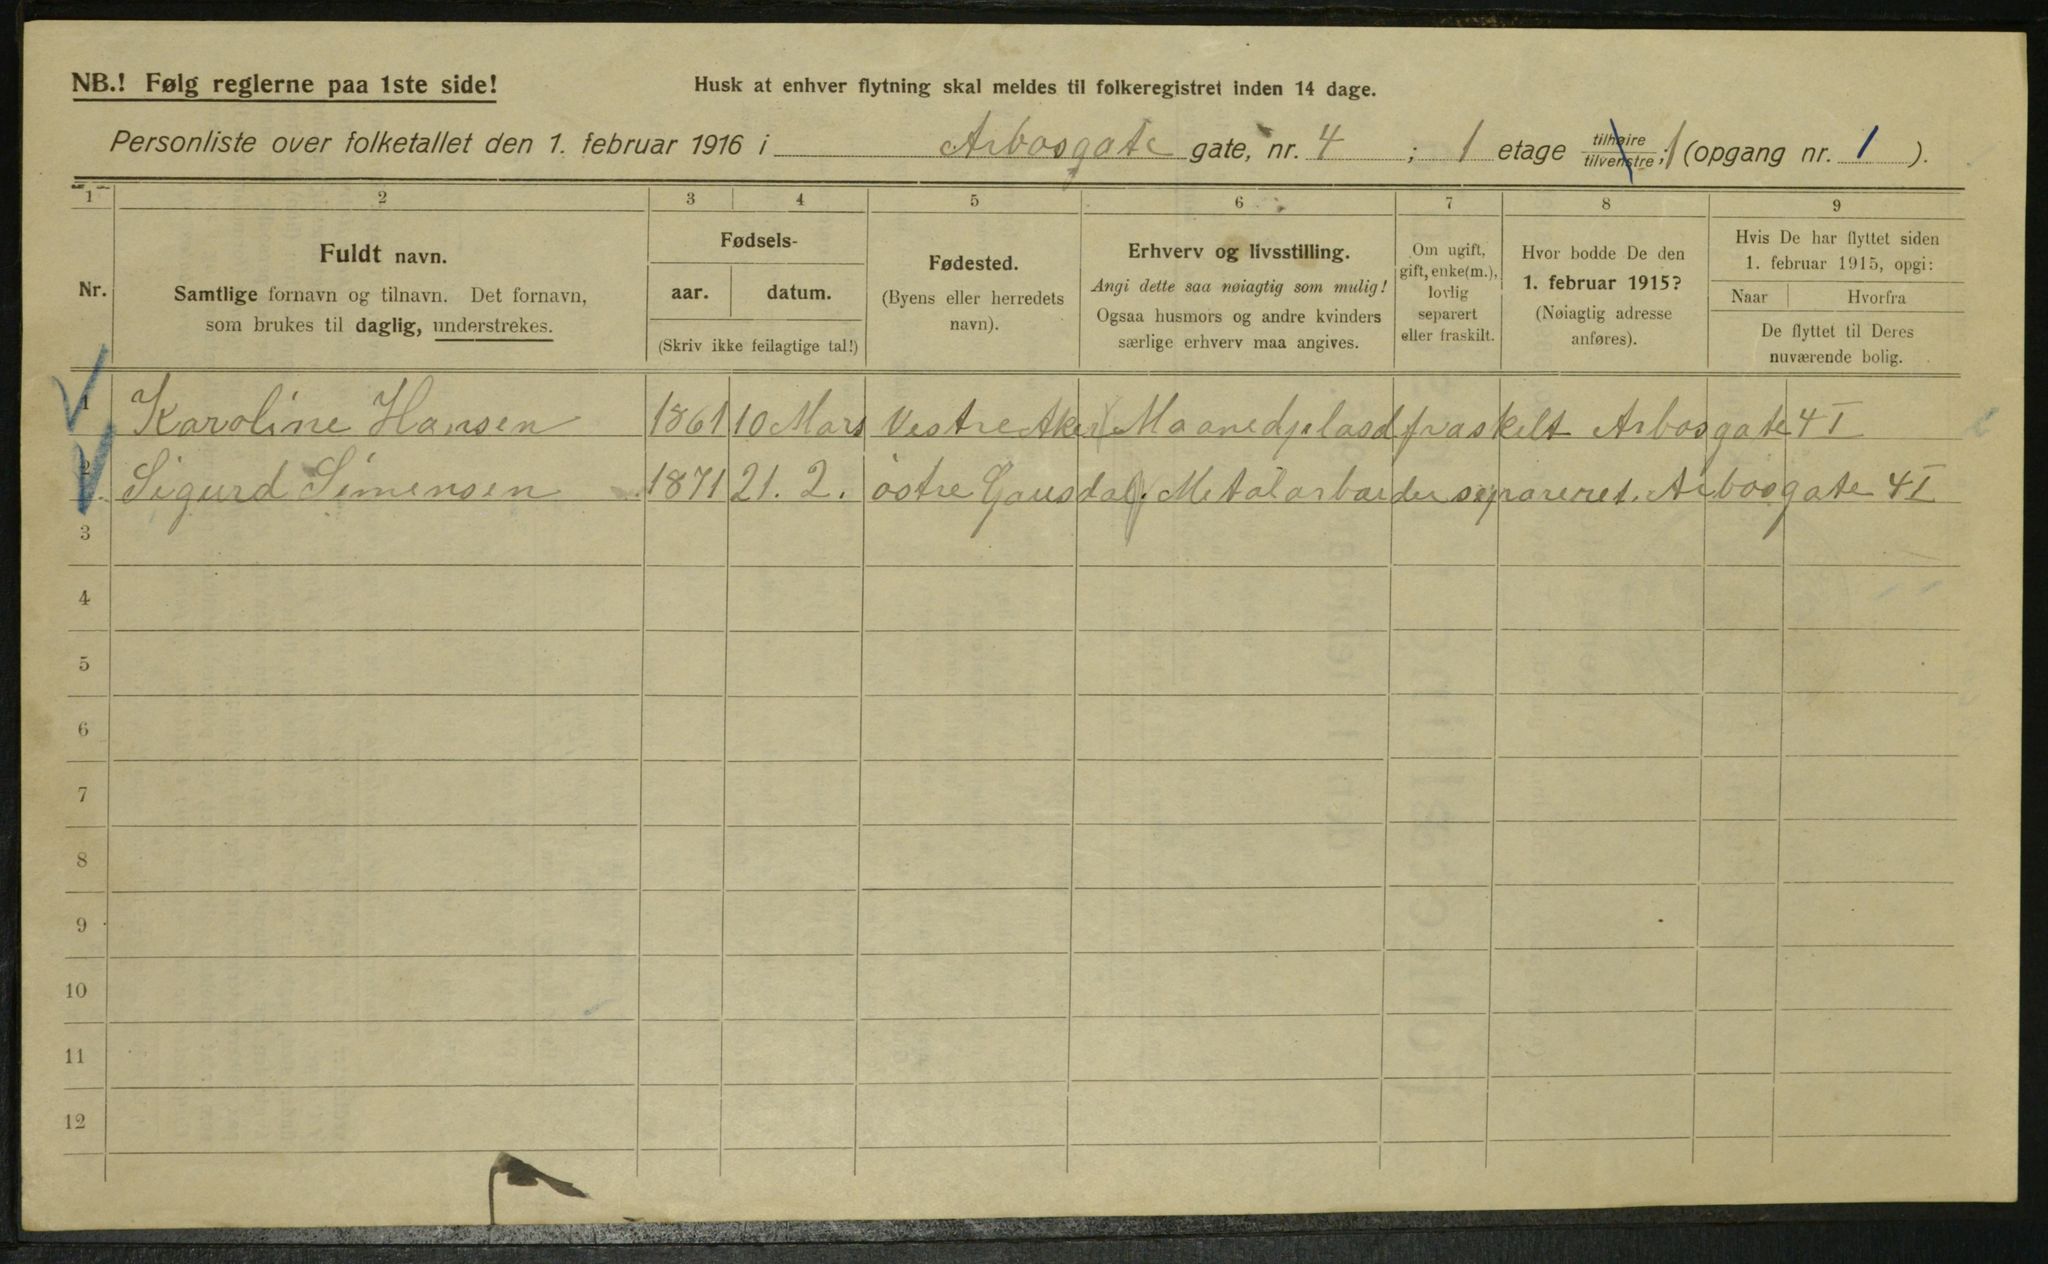 NB.! Følg reglerne paa 1ste side!
Husk at enhver flytning skal meldes til folkeregistret inden 14 dage.
Personliste over folketallet den 1. februar 1916 i Arbosgate gate, nr. 4 ; 1 etage tilhøire tilvenstre ; 1 (opgang nr. 1 ).
1 2 3 4 5 6 7 8 9
Nr.
Fuldt navn.
Samtlige fornavn og tilnavn. Det fornavn,
som brukes til daglig, understrekes.
Fødsels-
aar. datum.
(Skriv ikke feilagtige tal!)
Fødested.
(Byens eller herredets
navn).
Erhverv og livsstilling.
Angi dette saa nøiagtig som mulig!
Ogsaa husmors og andre kvinders
særlige erhverv maa angives.
Om ugift,
gift, enke(m.),
lovlig
separert
eller fraskilt.
Hvor bodde De den
1. februar 1915?
(Nøiagtig adresse
anføres).
Hvis De har flyttet siden
1. februar 1915, opgi:
Naar Hvorfra
De flyttet til Deres
nuværende bolig.
1 Karoline Hansen 1861 10 Mars Vestre Aker Maanedsplasd fraskelt Arbosgate 4 I
2 Sigurd Simensen 1871 21. 2. östre Gausdal. Metalarbaider separeret. Arbosgate 4 I
3
4
5
6
7
8
9
10
11
12